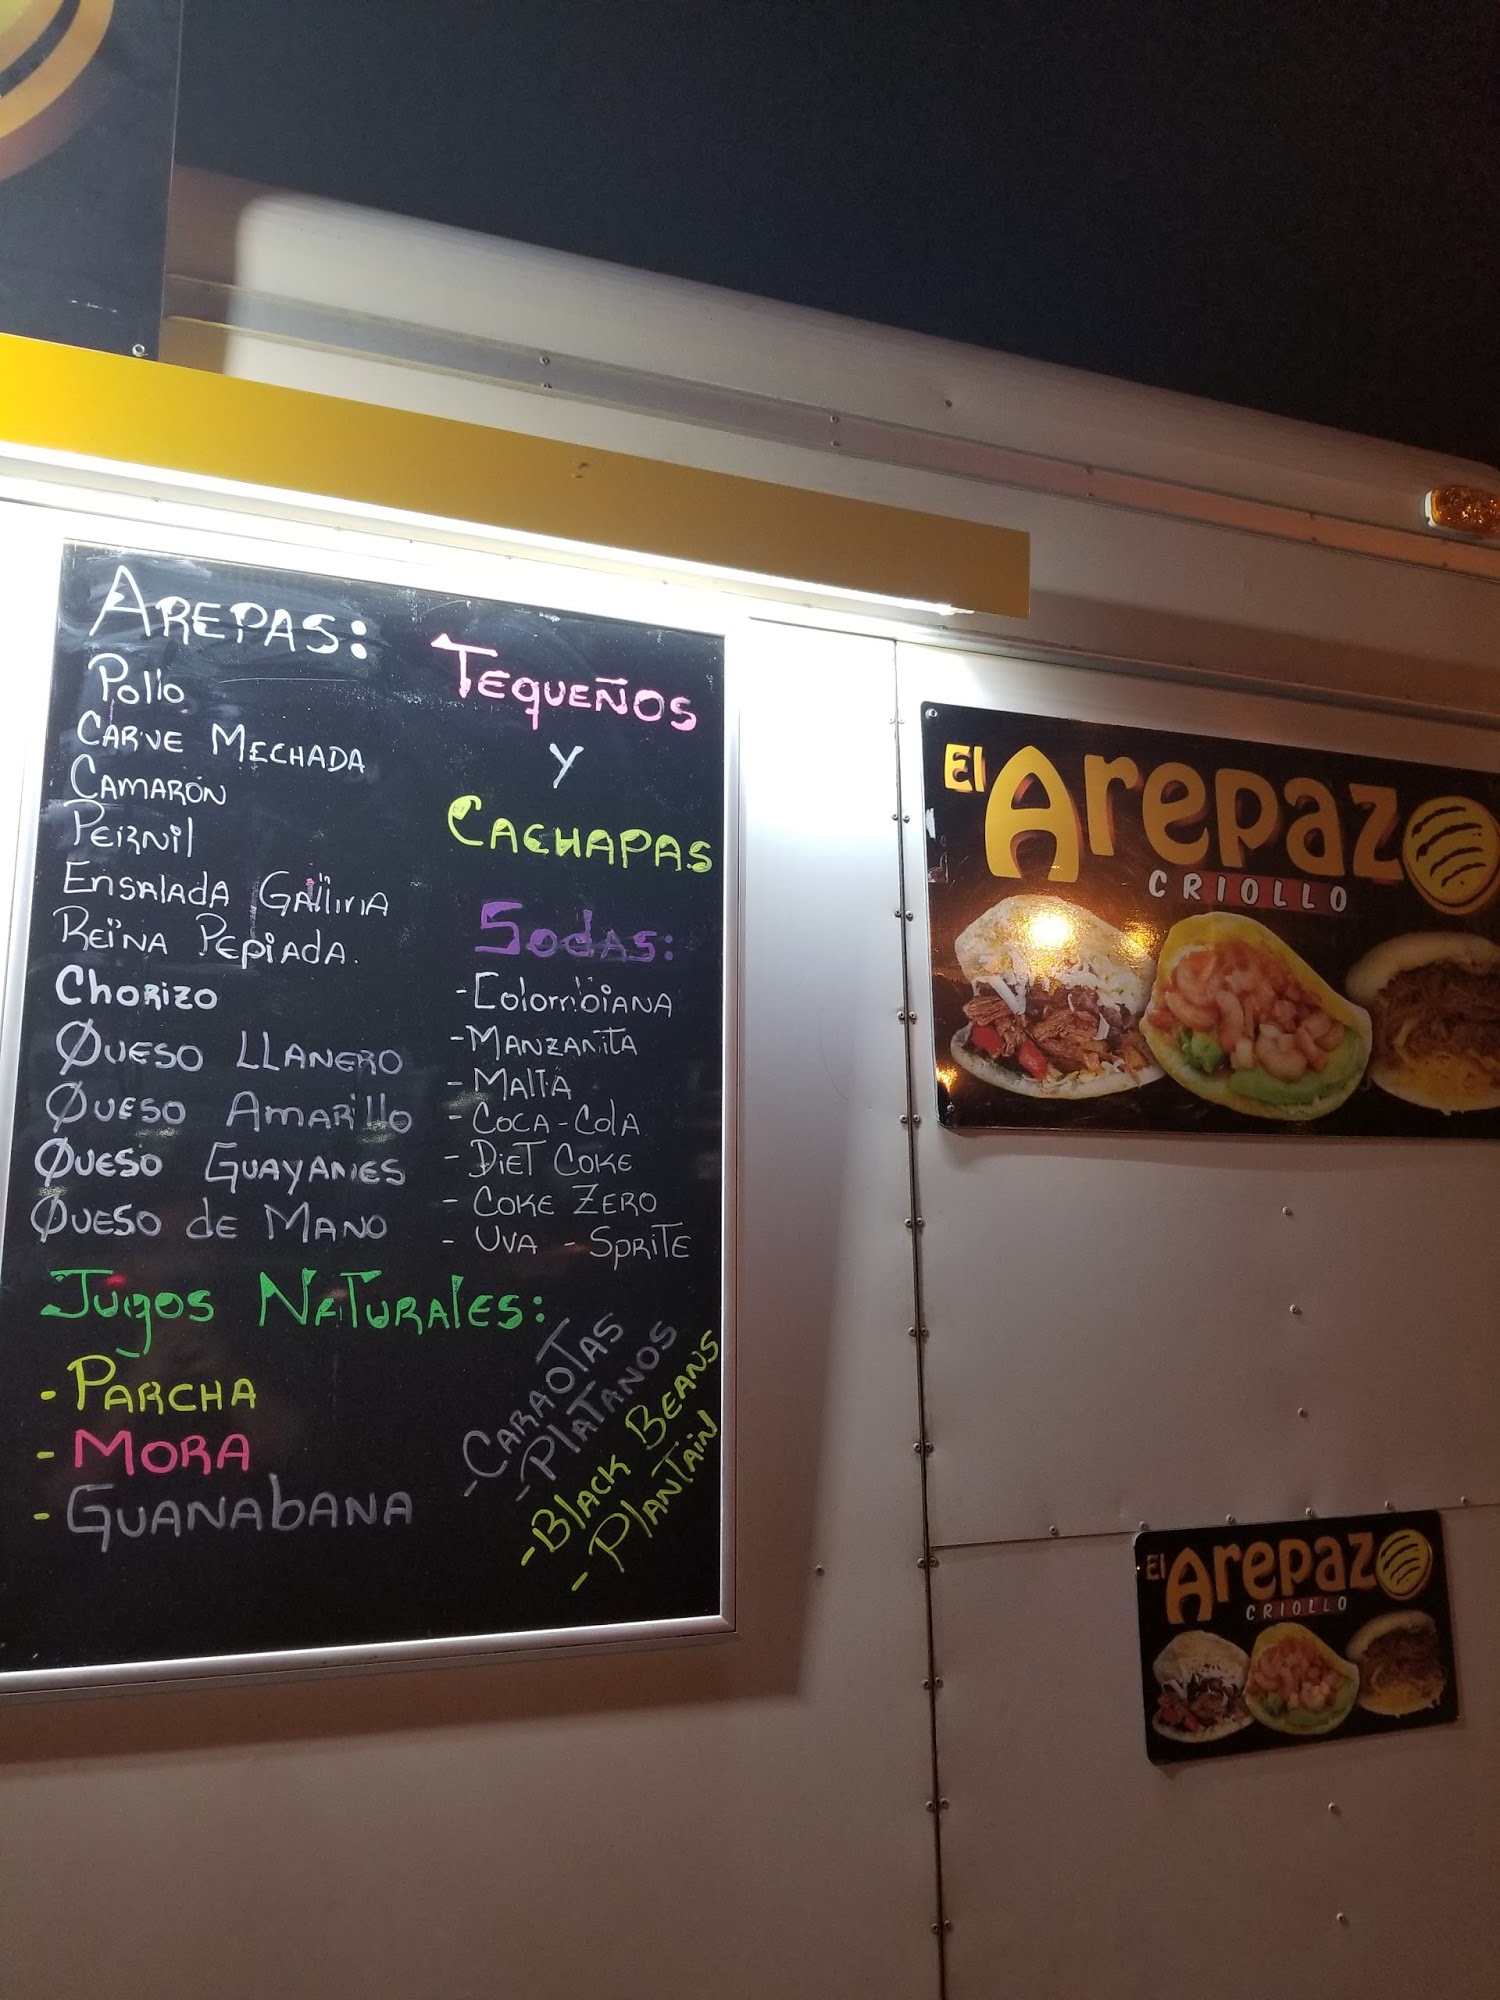 AREPAS:
Pollo
CARNE MECHADA
CAMARÓN
PERNIL
ENSALADA GALLINA
REINA PEPIADA.
CHORIZO
QUESO LLANERO
QUESO AMARILLO
QUESO GUAYANES
QUESO de MANO
JUGOS NATURALES:
- PARCHA
- MORA
- GUANABANA
TEQUEÑOS
Y
CACHAPAS
SODAS:
- COLOMBIANA
- MANZANITA
- MALTA
- COCA-COLA
- DIET COKE
- COKE ZERO
- UVA - SPRITE
- CARAOTAS
- PLATANOS
- BLACK BEANS
- PLANTAIN
El Arepazo
CRIOLLO
El Arepazo
CRIOLLO